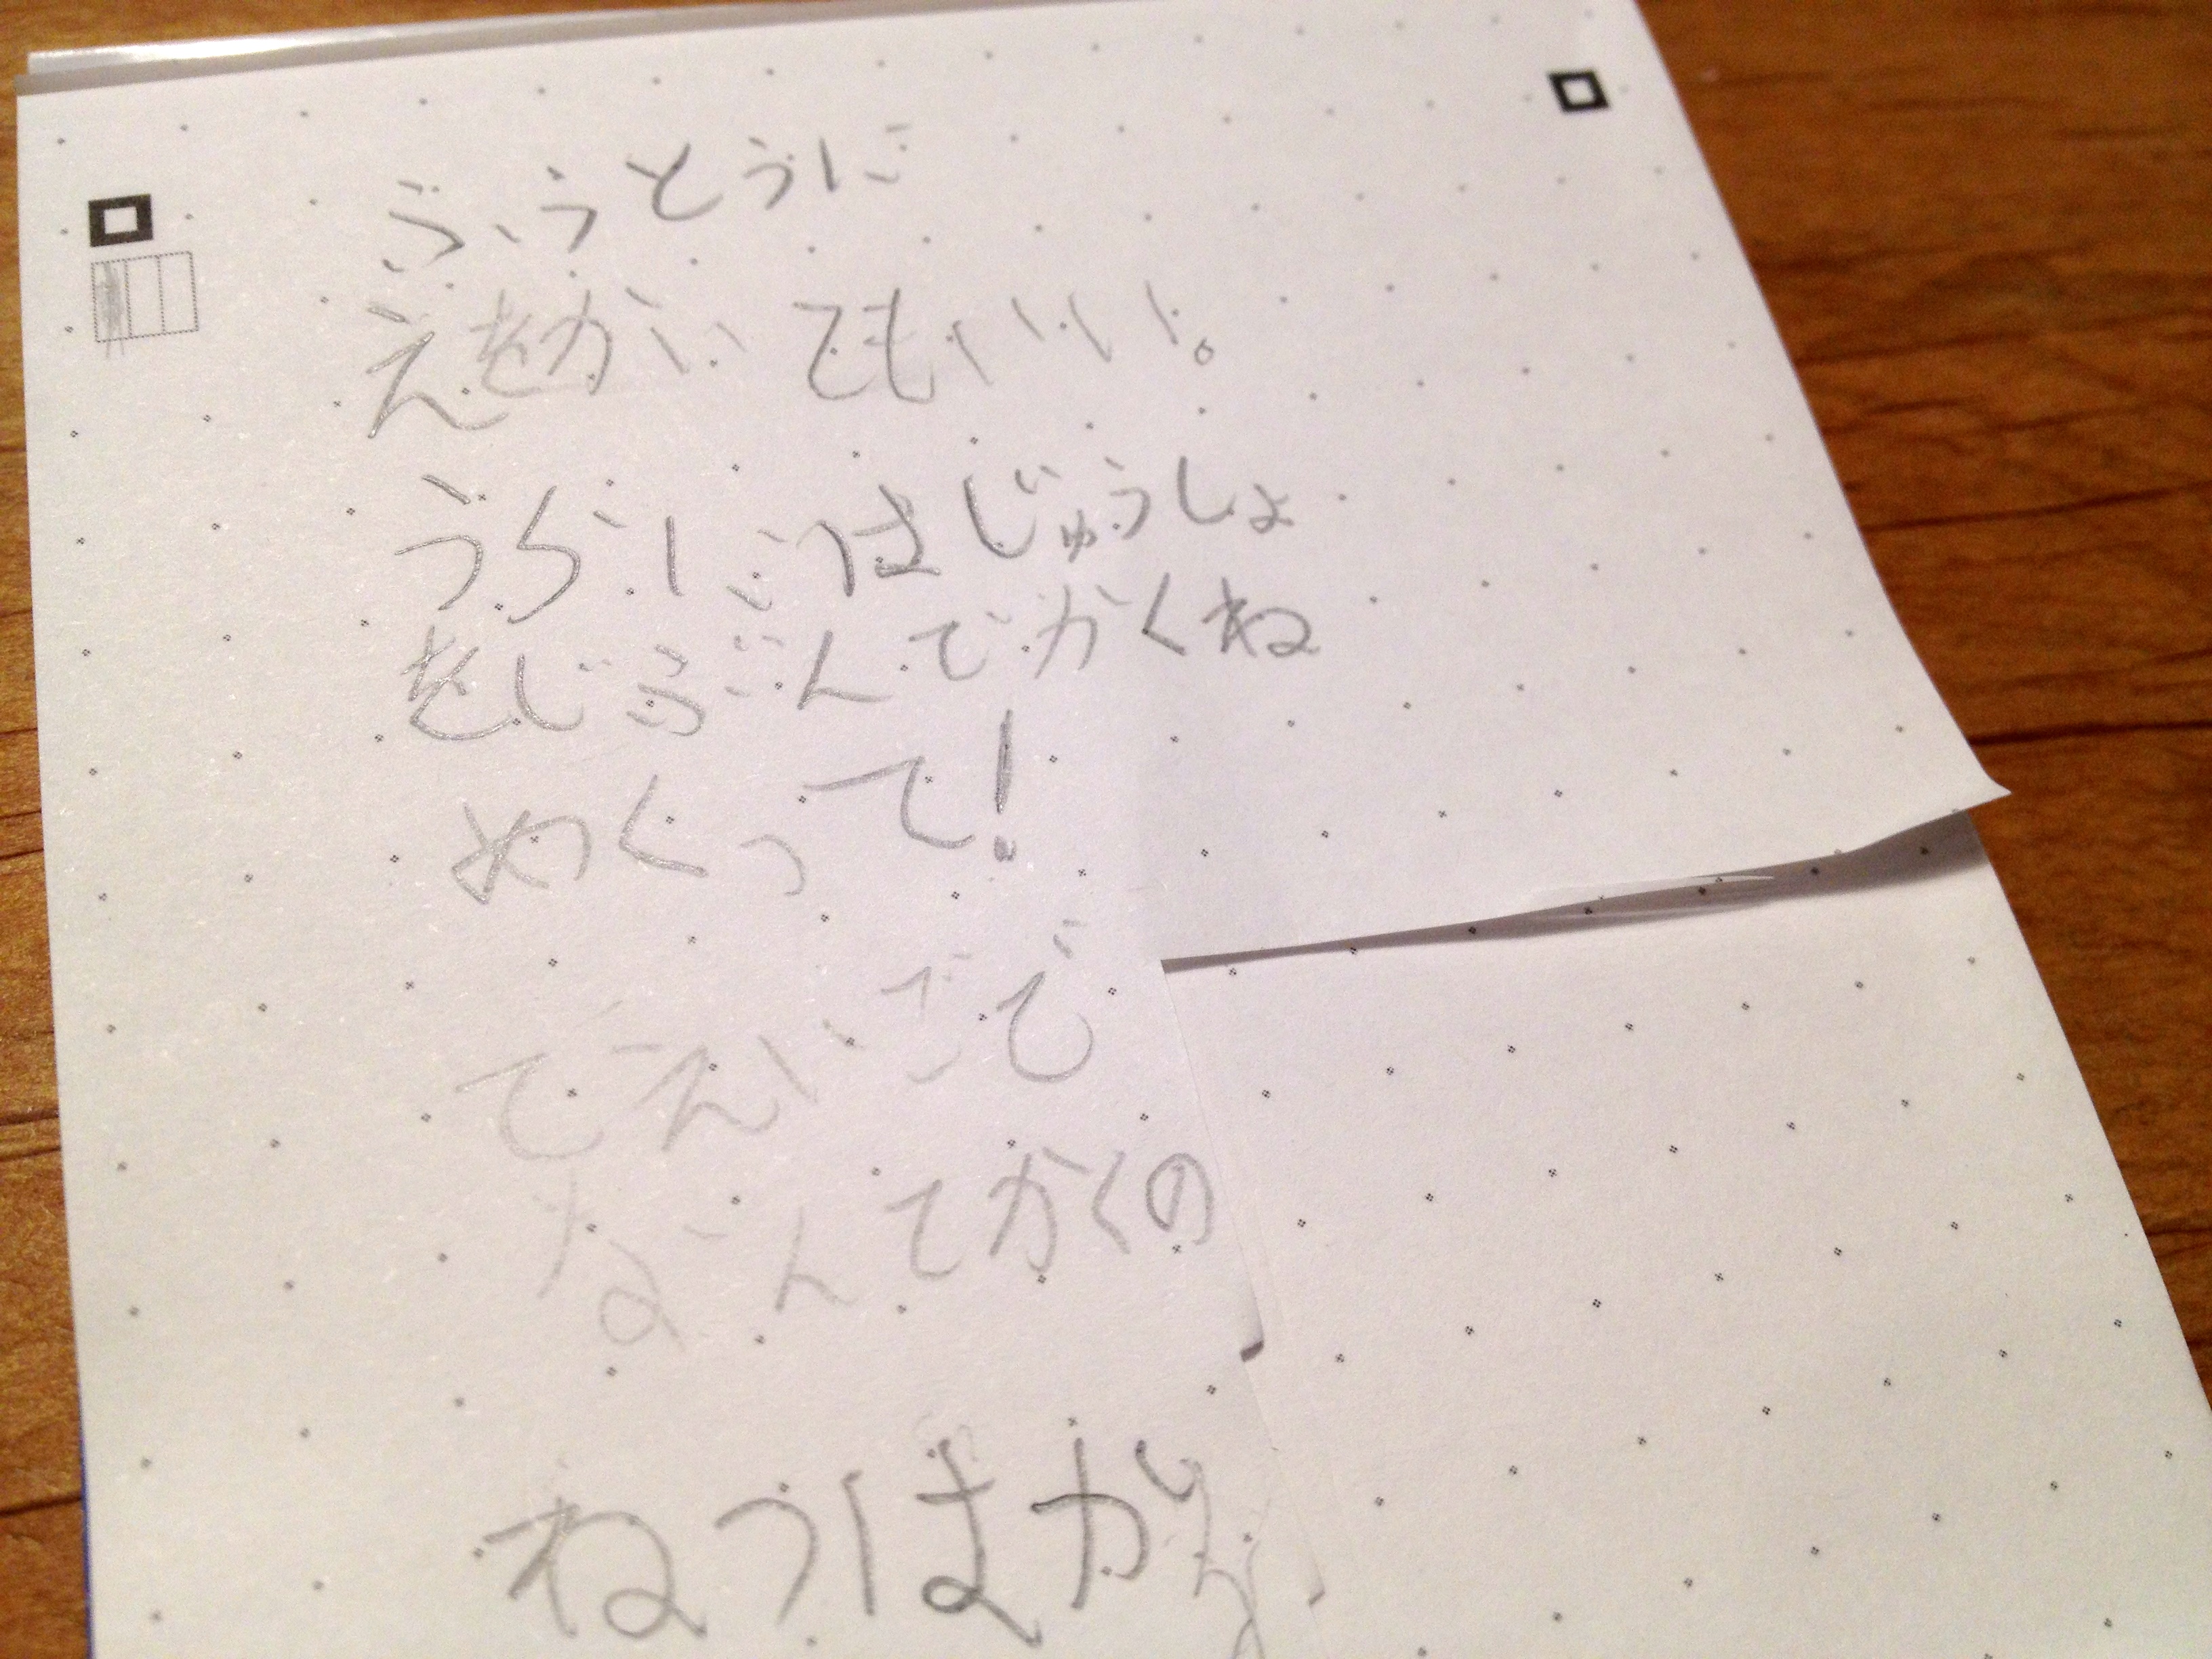 ふうとうに
えをかいてもいい。
うらにはじゅうしょ
をじぶんでかくね
めくって!
でえいごで
なんてかくの
ねつはか